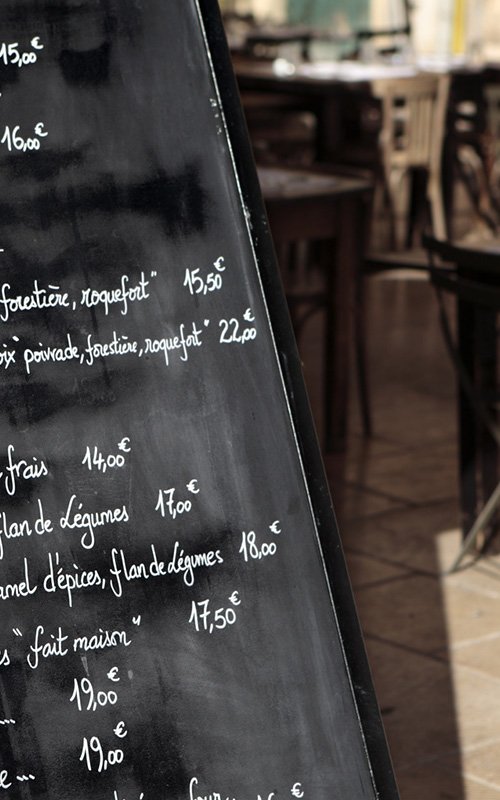 15,00€
16,00€
forestière, roquefort" 15,50€
poivrade, forestière, roquefort" 22,00€
frais 14,00€
flan de Légumes 17,00€
d'épices, flan de Légumes 18,00€
"fait maison" 17,50€
19,00€
...
19,00€
...